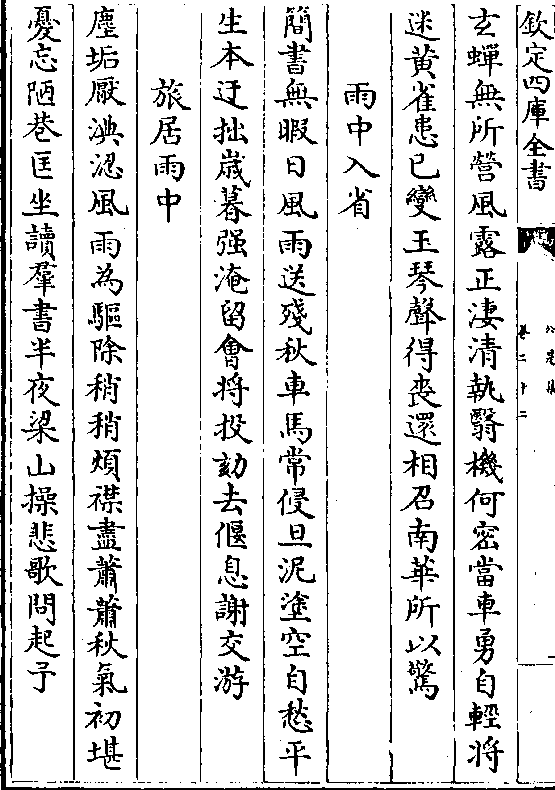 欽定四庫全書
卷二十二
玄蟬無所營風露正淒清執翳機何密當車勇自輕將
迷黃雀患已變玉琴聲得喪還相召南華所以驚
雨中入省
簡書無暇日風雨送殘秋車馬常侵旦泥塗空自愁平
生本迂拙歲暮强淹留會將投劾去偃息謝交游
旅居雨中
塵垢厭淟涊風雨為驅除稍稍煩襟盡蕭蕭秋氣初堪
憂忘陋巷匡坐讀羣書半夜梁山操悲歌問起予